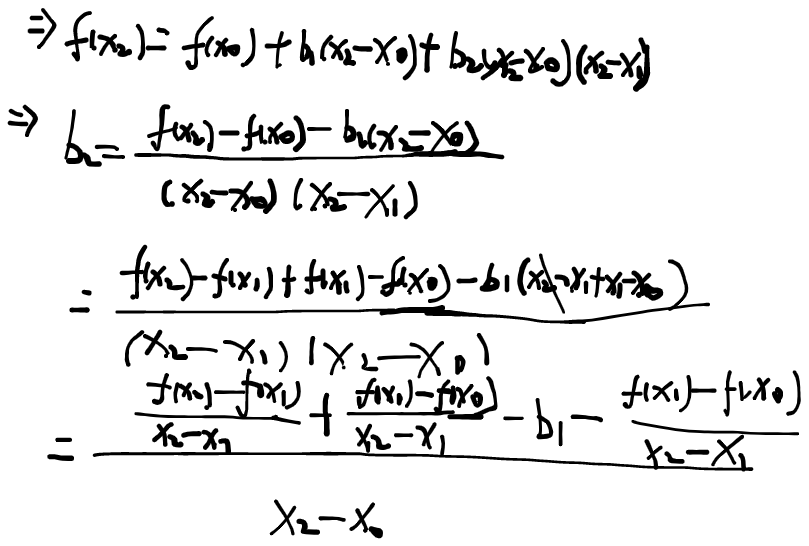 ⇒ f(x₂) = f(x₀) + b₁(x₂−x₀) + b₂(x₂−x₀)(x₂−x₁)
⇒ b₂ = \frac{f(x₂)−f(x₀)−b₁(x₂−x₀)}{(x₂−x₀)(x₂−x₁)}
= \frac{f(x₂)−f(x₁)+f(x₁)−f(x₀)−b₁(x₂−x₁+x₁−x₀)}{(x₂−x₁)(x₂−x₀)}
= \frac{\frac{f(x₂)−f(x₁)}{x₂−x₁}+\frac{f(x₁)−f(x₀)}{x₂−x₁}−b₁−\frac{f(x₁)−f(x₀)}{x₂−x₁}}{x₂−x₀}